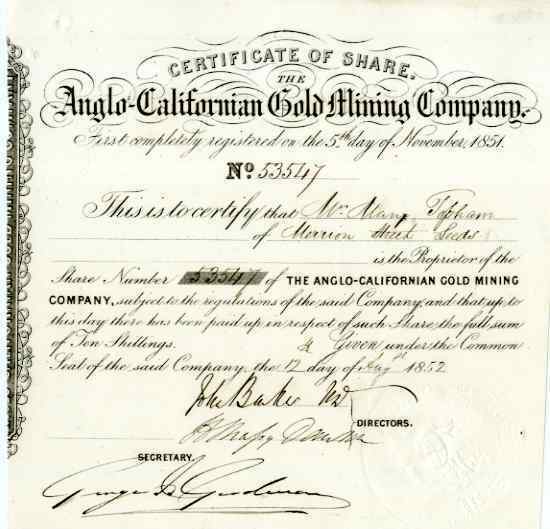 CERTIFICATE OF SHARE.
THE
Anglo-Californian Gold Mining Company.
First completely registered on the 5th day of November, 1851.
No 53547
This is to certify that Mrs Mary Topham
of Merrion Street Leeds
is the Proprietor of the
Share Number 53547 of THE ANGLO-CALIFORNIAN GOLD MINING
COMPANY, subject to the regulations of the said Company, and that up to
this day there has been paid up in respect of such Share, the full sum
of Ten Shillings. Given under the Common
Seal of the said Company, the 12 day of Augst 1852
John Barker
DIRECTORS.
SECRETARY.
George